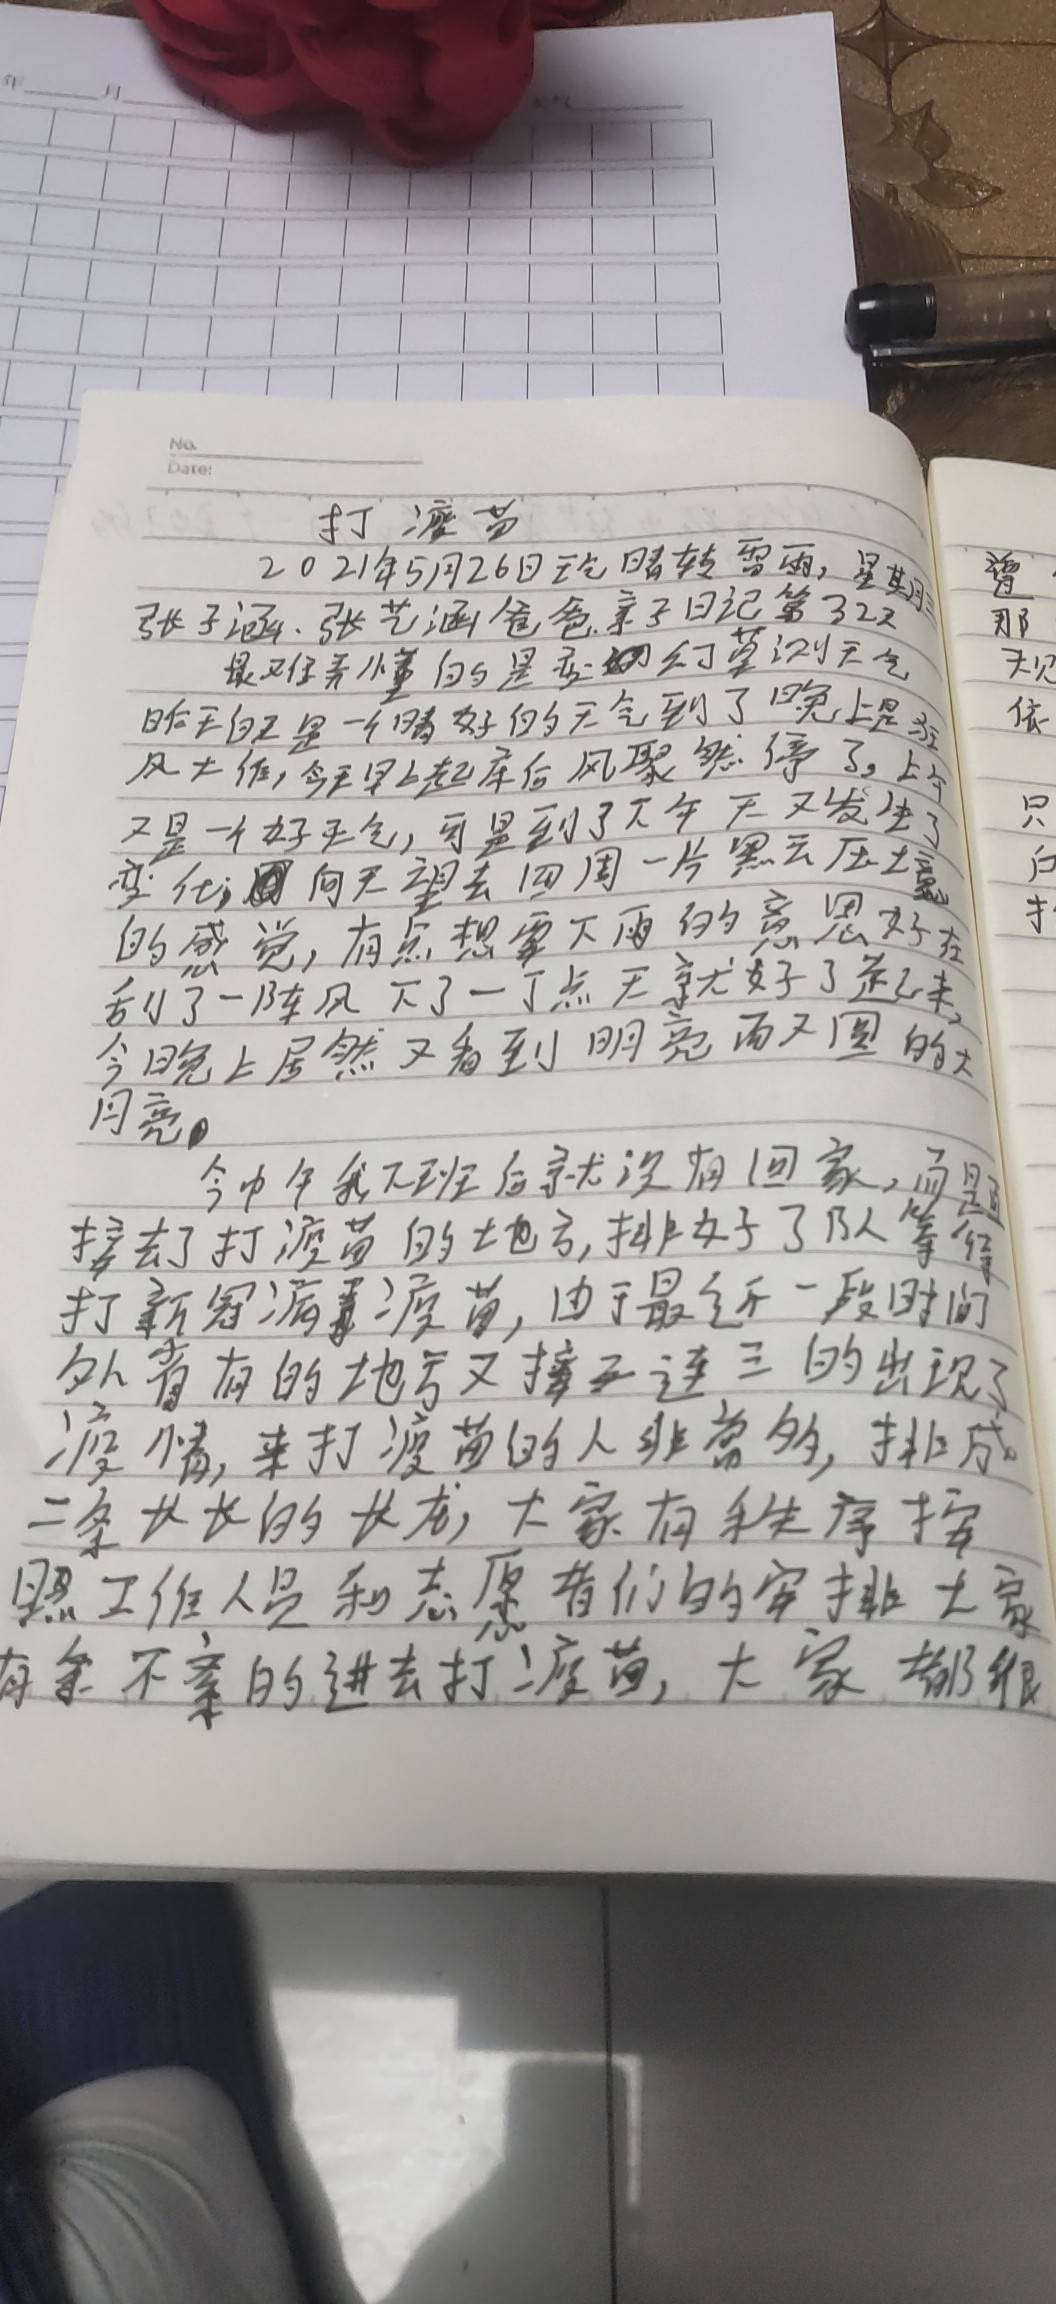 年 月
No.
Date:
打疫苗
2021年5月26日天气晴转雷雨，星期三
张子涵、张艺涵爸爸亲子日记第32天
最难弄懂的是变幻莫测天气
昨天白天是一个晴好的天气到了晚上是狂
风大作，今天早上起床后风骤然停了。上午
又是一个好天气，可是到了下午天又发生了
变化，向天望去四周一片黑云压土
的感觉，有点想要下雨的意思好在
刮了一阵风下了一丁点天就好了起来，
今晚上居然又看到明亮而又圆的大
月亮。
今中午我下班后就没有回家，而是直
接去了打疫苗的地方，排好了队等待
打新冠病毒疫苗，由于最近一段时间
外省有的地方又接二连三的出现了
疫情，来打疫苗的人非常多，排成
二条长长的长龙，大家有秩序按
照工作人员和志愿者们的安排大家
有条不紊的进去打疫苗，大家都很
那
观
依
只
白